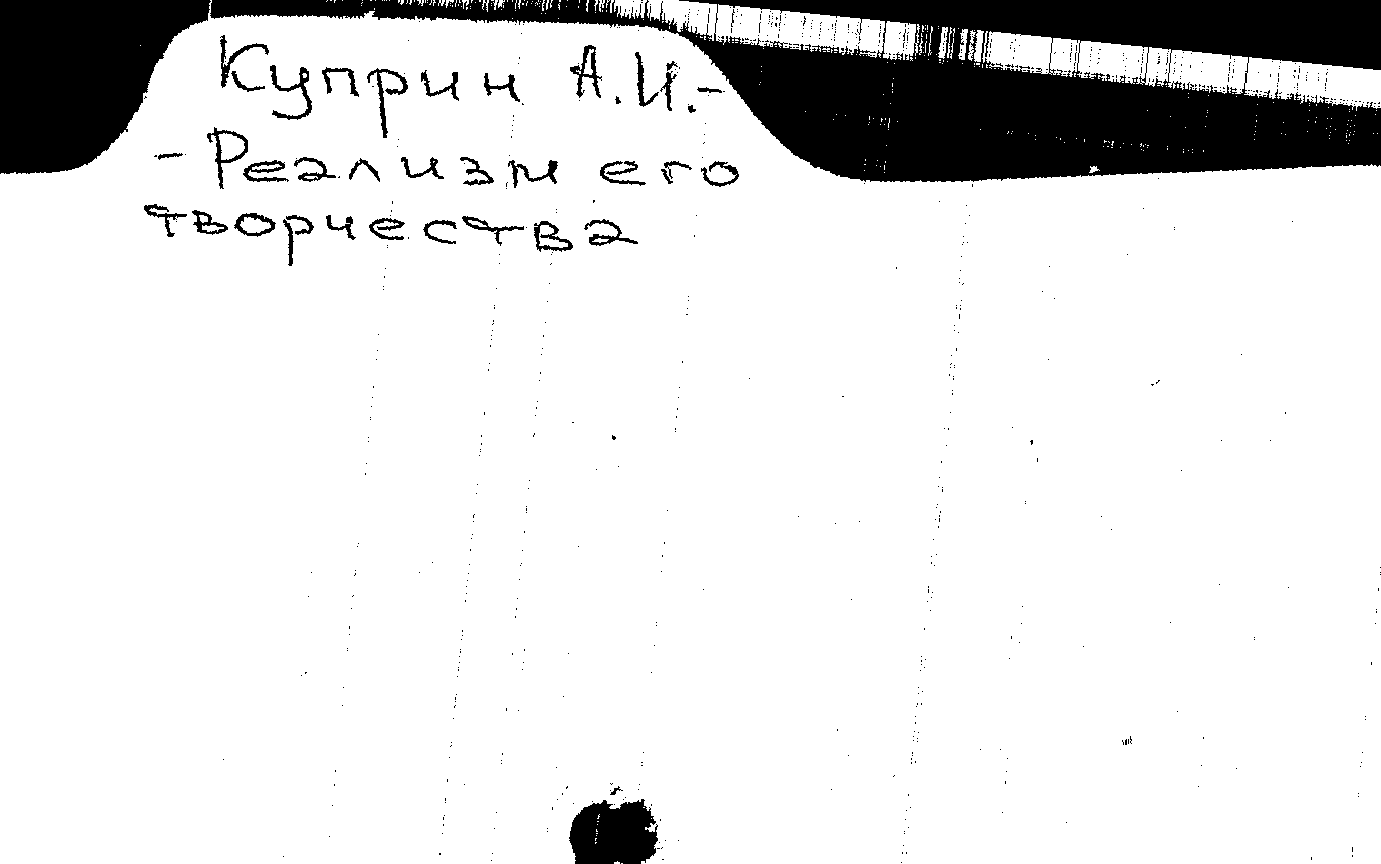 Куприн А.И.-
- Реализм его
творчества